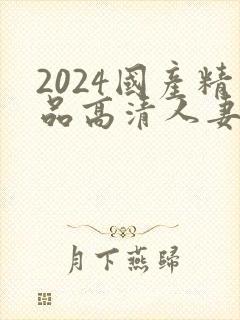 2024國産精
品高清人妻
月下燕歸